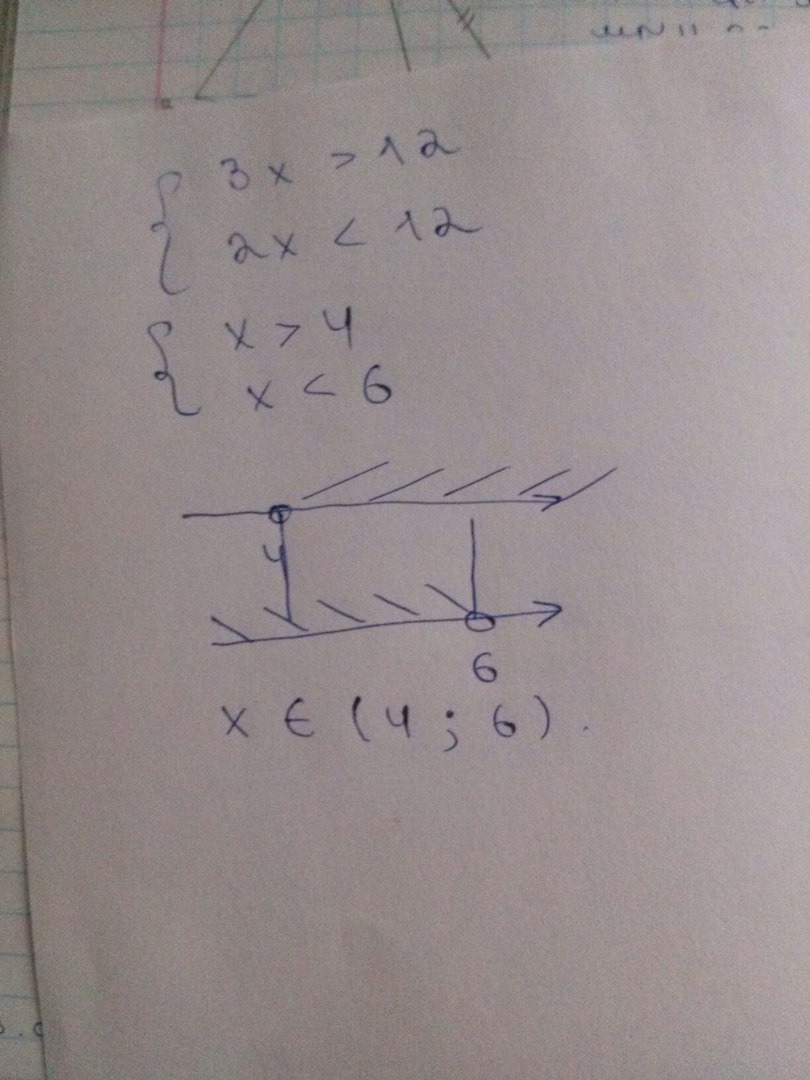 { 3x > 12
2x < 12
{ x > 4
x < 6
4
6
x ∈ (4 ; 6) .